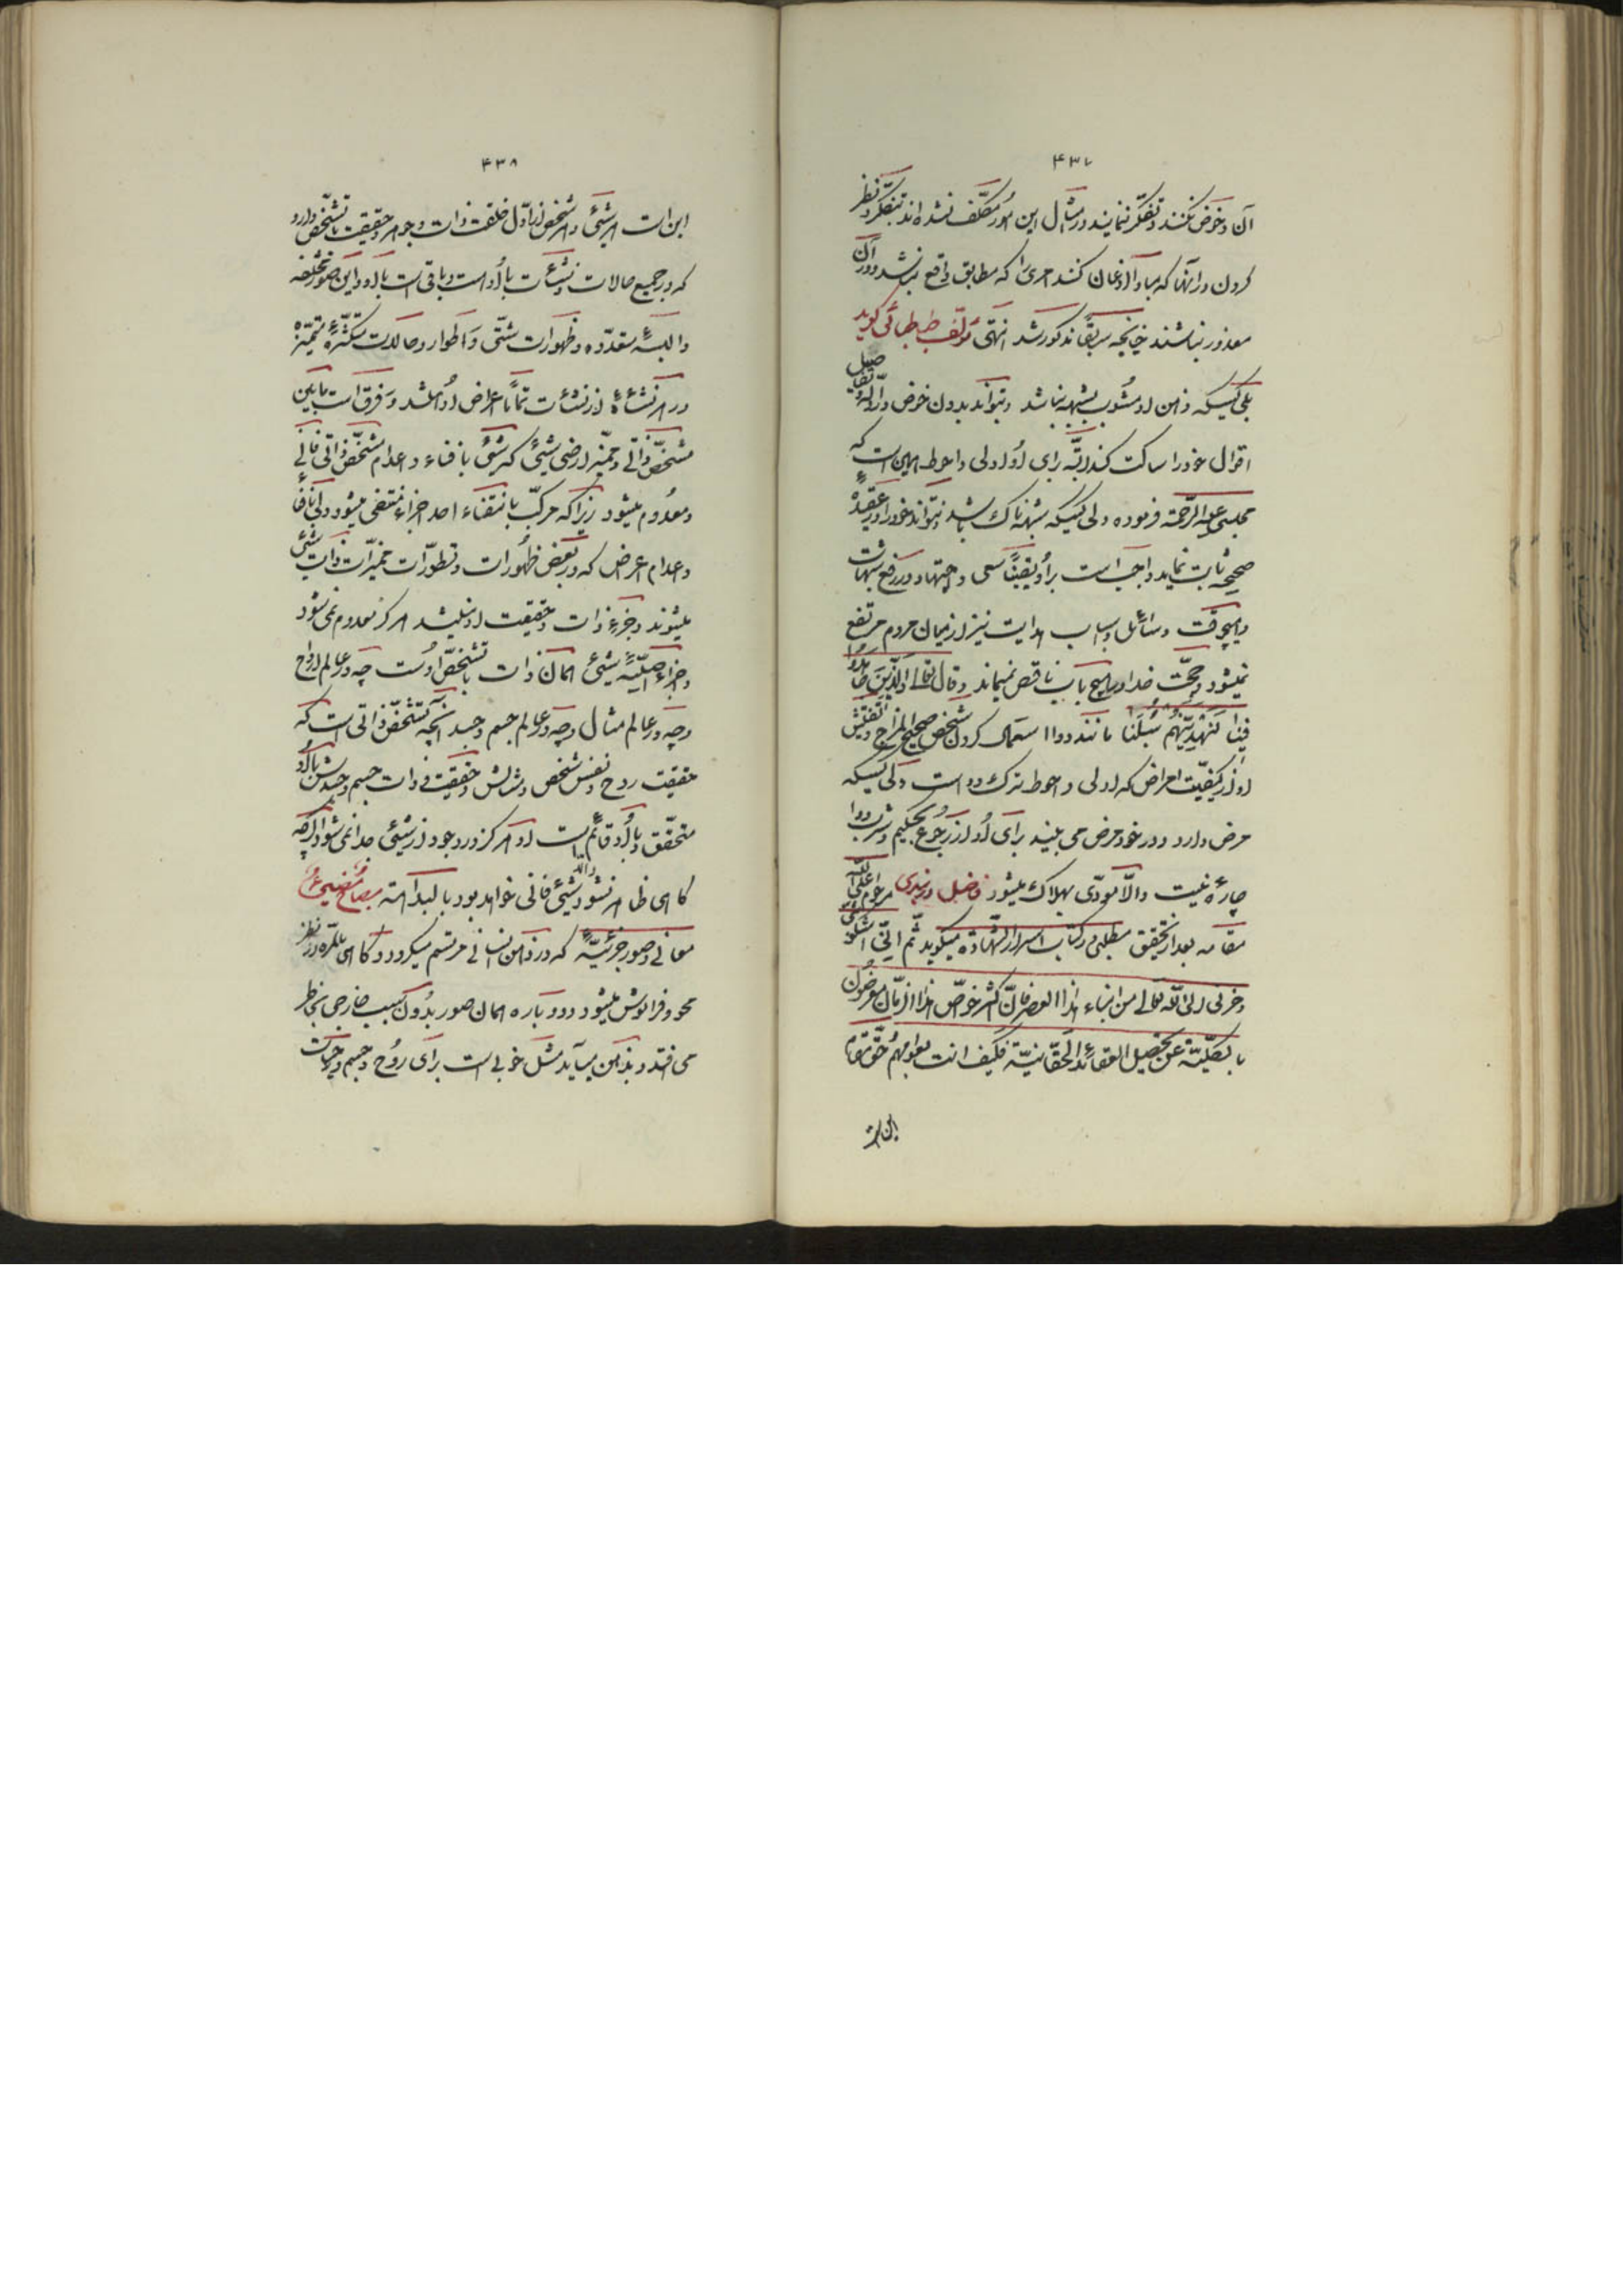 ۴۳۷
آن و خوض نکنند و تفکر ننمایند در مثال این امور مکلف نشده اند بتفکر و نظر
کردن در آنها که مبادا اذعان کنند امری را که مطابق واقع نباشد و در آن
معذور نباشند چنانچه سابقا مذکور شد انتهی مؤلف طباطبائی گوید
بلی کسیکه ذهن او مشوب بشبهه نباشد و بتواند بدون خوض در ادله و تفاصیل
اقوال خود را ساکت کند البته برای او اولی و احوط همین است که
مجلسی علیه الرحمة فرموده ولی کسیکه شبهه ناک باشد و نتواند خود را در عقیدهٔ
صحیحه ثابت نماید واجب است بر او یقینا سعی و اجتهاد در رفع شبهات
و هیچوقت وسائل و اسباب هدایت نیز از میان مردم مرتفع
نمیشود و حجت خدا در هیچ باب ناقص نمیماند و قال تعالی والذین جاهدوا
فینا لنهدینهم سبلنا مانند دوا استعمال کردن شخص صحیح المزاج و تفتیش
او از کیفیت امراض که اولی و احوط ترک دوا است ولی کسیکه
مرض دارد و در خود مرض می بیند برای او از رجوع بحکیم و شرب دوا
چارهٔ نیست و الا مودی بهلاک میشود فاضل دربندی مرحوم اعلی الله
مقامه بعد از تحقیق مطلبی در کتاب اسرار الشهادة میگوید ثم انی اشکو
و حزنی الی الله تعالی من ابناء هذا العصر فان اکثر خواص هذا الزمان معرضون
بالکلیة عن تحصیل العقائد الحقانیة فکیف انت بعوامهم
۴۳۸
این است هر شیئی و هر شخص از اول خلقت ذات و جوهر و حقیقت با تشخص دارد
که در جمیع حالات و نشئات با او است و باقی است با او و این صور مختلفه
و البسهٔ متعدده و ظهورات شتی و اطوار و حالات متکثرهٔ متمیزه
در هر نشاهٔ از نشئات تماما اعراض او باشد و فرق است مابین
مشخص ذاتی و ممیز ارضی شیئی که شیئی بافناء و اعدام مشخص ذاتی فانی
و معدوم میشود زیرا که مرکب بانتفاء احد اجزاء منتفی میشود ولی بافناء
و اعدام اعراض که در بعض ظهورات و تطورات ممیزات ذات شیئی
میشوند و جزء ذات و حقیقت او نباشند هرگز معدوم نمی شود
و اجزاء اصلیهٔ شیئی همان ذات با تشخص اوست چه در عالم ارواح
و چه در عالم مثال و چه در عالم جسم و جسد آنچه تشخص ذاتی است که
حقیقت روح و نفس شخص و مثالش و حقیقت ذات جسم و جسدش با او
متحقق و با او قائم است او هرگز در وجود از شیئی جدا نمی شود اگرچه
گاهی ظاهر نشود والا شیئی فانی خواهد بود بالبداهة
معانی و صور جزئیه که در ذهن انسانی مرتسم میگردد و گاهی بالمره از نظر
محو و فراموش میشود و دوباره همان صور بدون کسب خارجی بخاطر
می افتد و بذهن میآید مثل خوبی است برای روح و جسم و حیات